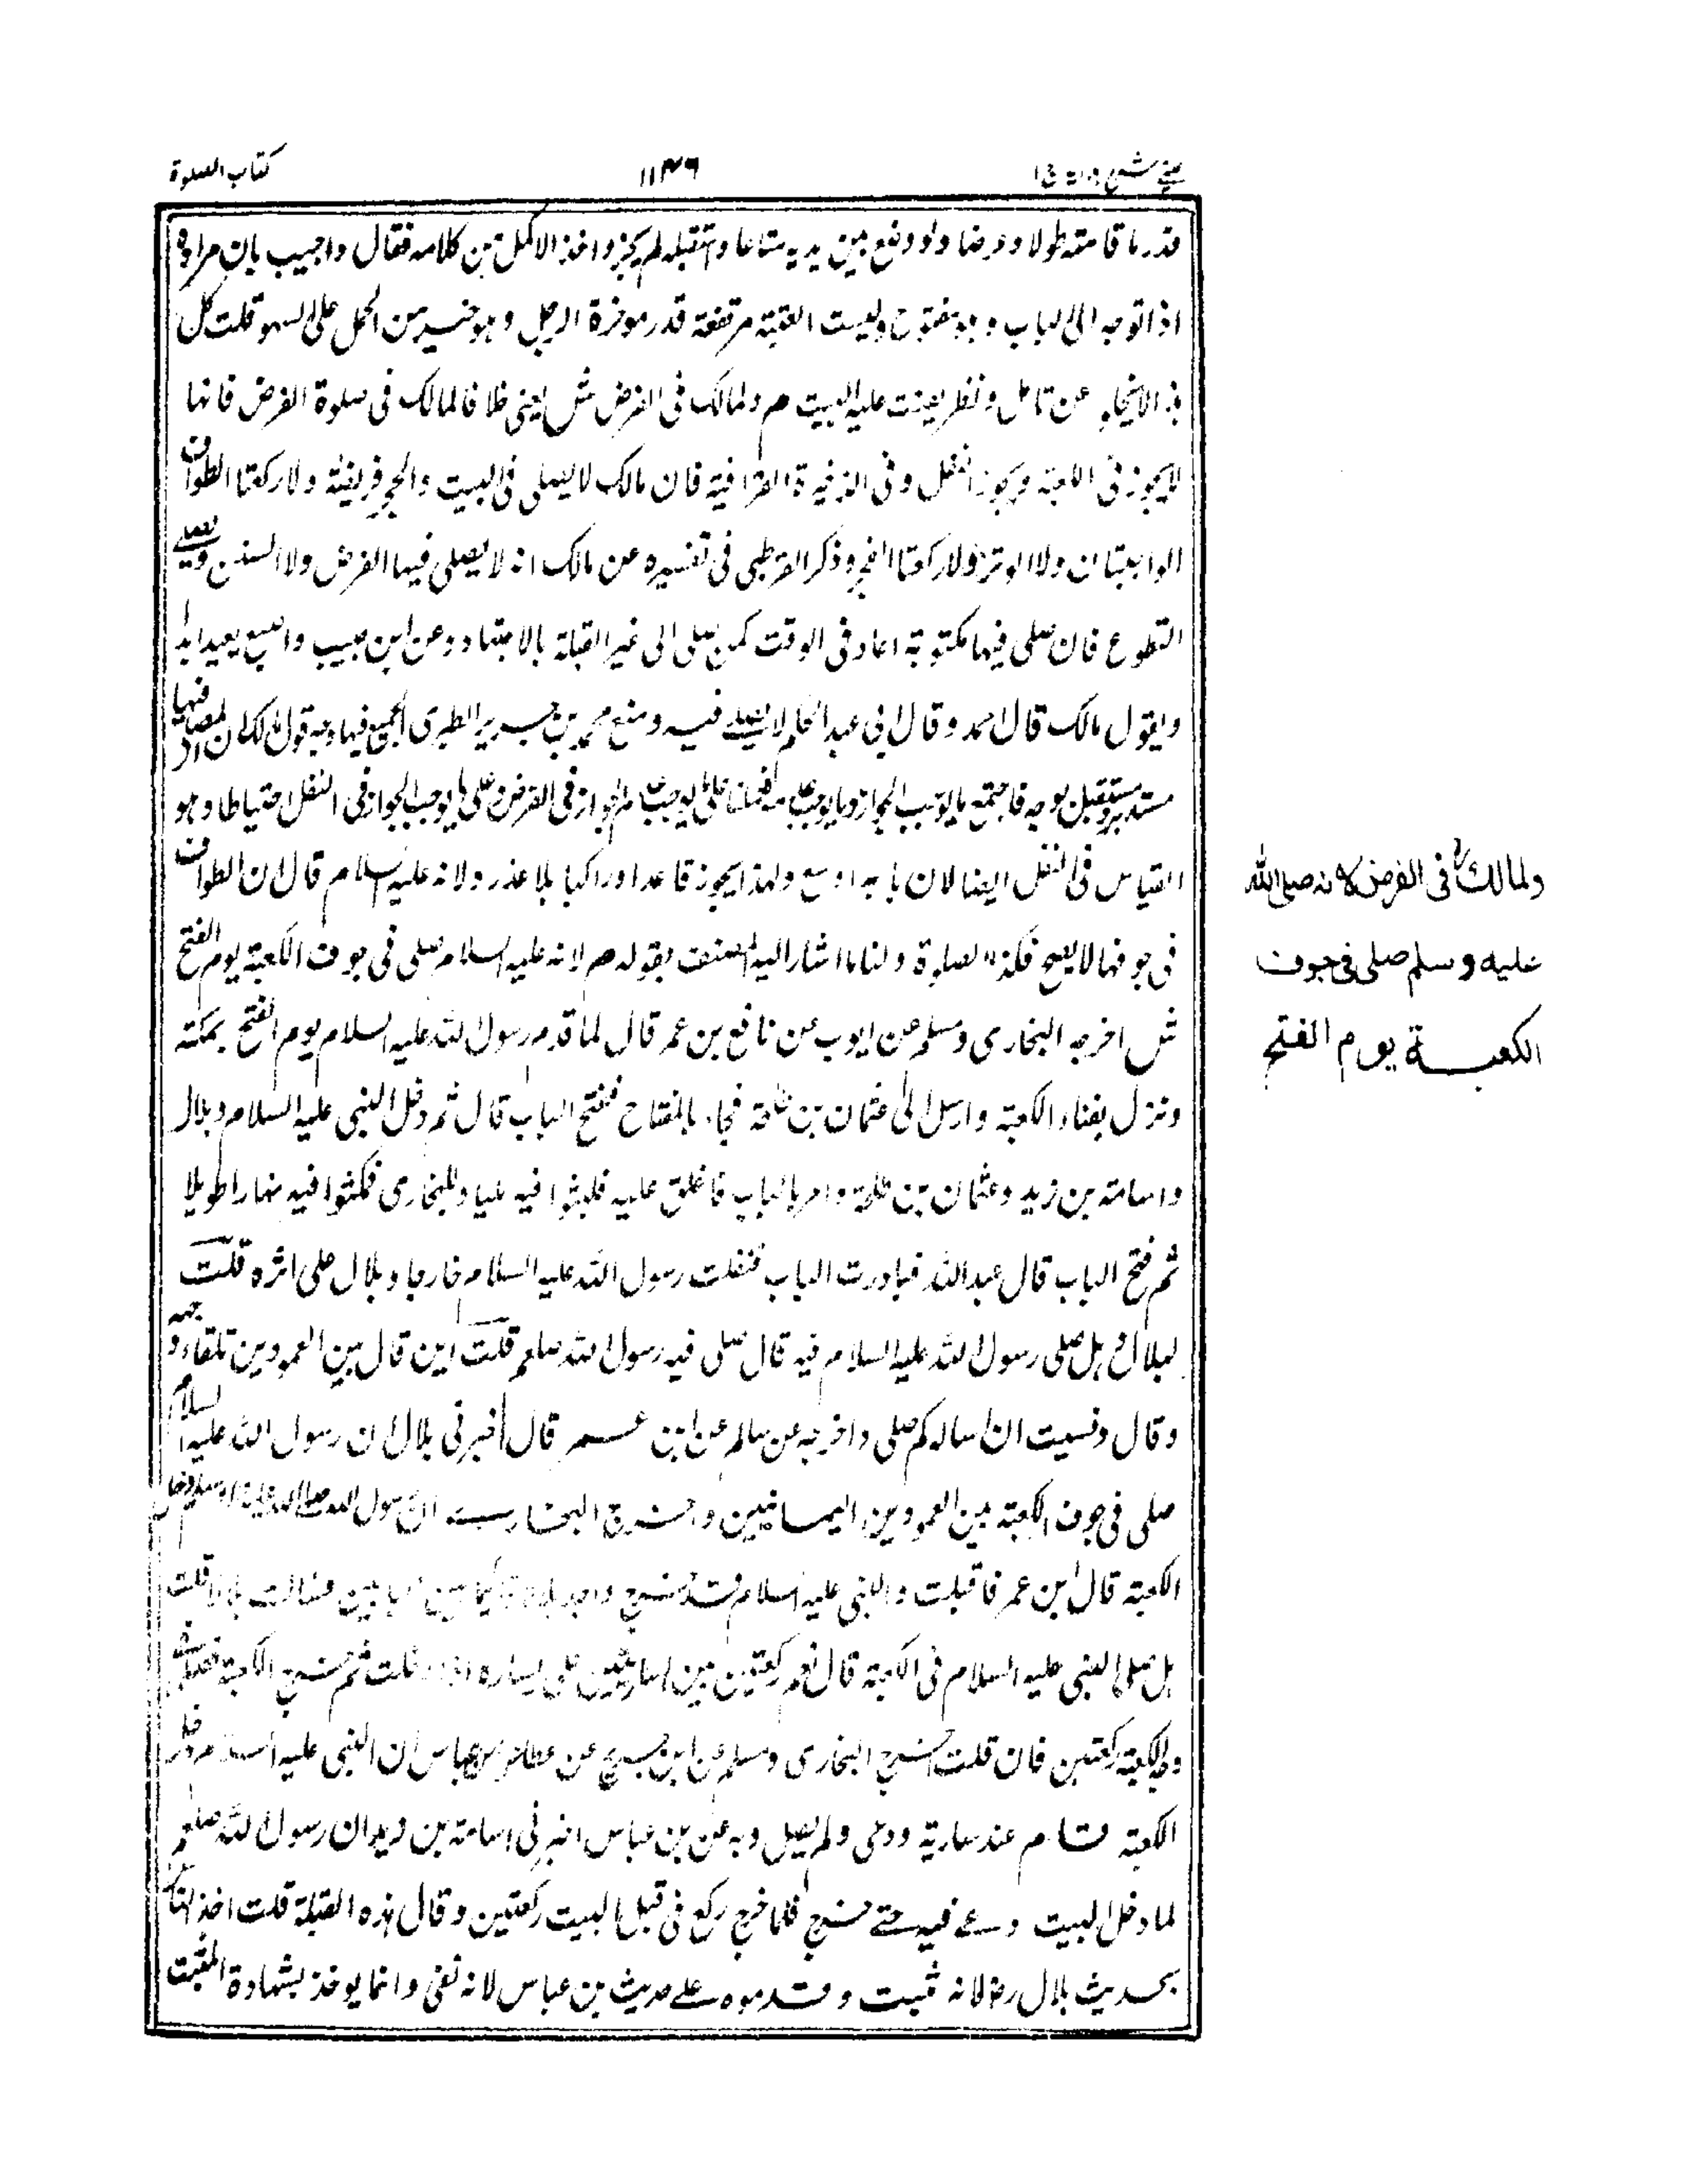 كتاب الصلوة
١١٣٦
عينى شرح هداية ج ١
قدر ما قامته طولا وعرضا ولو وضع بين يديه متاعا واستقبله لم يجز واخذ الاكمل من كلامه فقال واجيب بان مراده
اذا توجه الى الباب وهو مفتوح وليست العتبة مرتفعة قدر موخرة الرحل وهو خير من الحمل على السهو قلت كل
عن تامل ونظر عليه البيت م ولمالك فى الفرض ش يعنى خلافا لمالك فى صلوة الفرض فانها
لايجوز فى الكعبة ويجوز النفل وفى الذخيرة القرافية فان مالك لايصلى فى البيت والحجر فريضة ولا ركعتا الطواف
الواجبتان ولا الوتر ولا ركعتا الفجر وذكر القرطبى فى تفسيره عن مالك انه لا يصلى فيها الفرض ولا السنن ويصلى
التطوع فان صلى فيها مكتوبة اعاد فى الوقت كمن صلى الى غير القبلة بالاجتهاد وعن ابن حبيب واصبغ يعيد ابدا
وبقول مالك قال احمد وقال ابن عبد الحكم لايعيد ومنع محمد بن جرير الطبرى الجميع فيها وجه قول مالك ان المصلى فيها
مستدبر ومستقبل بوجه فاجتمع ما يوجب الجواز وما يوجب عدمه ما يوجب عدم الجواز فى الفرض وعلى ما يوجب الجواز فى النفل احتياطا وهو
القياس فى النفل ايضا لان بابه اوسع ولهذا يجوز قاعدا وراكبا بلا عذر ولانه عليه السلام قال ان الطواف
فى جوفها لايصح فكذا الصلوة ولنا ما اشار اليه المصنف بقوله م لانه عليه السلام صلى فى جوف الكعبة يوم الفتح
ش اخرجه البخارى ومسلم عن ايوب عن نافع بن عمر قال لما قدم رسول الله عليه السلام يوم الفتح بمكة
ونزل بفناء الكعبة وارسل الى عثمان بن طلحة فجاء بالمفتاح ففتح الباب قال ثم دخل النبى عليه السلام وبلال
واسامة بن زيد وعثمان بن طلحة وامر بالباب فاغلق عليه فلبثوا فيه مليا وللبخارى فمكثوا فيه نهارا طويلا
ثم فتح الباب قال عبد الله فبادرت الباب فتلقيت رسول الله عليه السلام خارجا وبلال على اثره قلت
لبلال هل صلى رسول الله عليه السلام فيه قال صلى فيه رسول الله صلعم قلت اين قال بين العمودين تلقاء وجهه
وقال ونسيت ان اساله كم صلى واخرجه عن سالم عن ابن عمر قال اخبرنى بلال ان رسول الله عليه السلام
صلى فى جوف الكعبة بين العمودين اليمانيين واخرج البخارى ان رسول الله صلى الله عليه وسلم دخل
الكعبة قال ابن عمر فاقبلت والنبى عليه السلام قد خرج واجد بلالا قائما بين البابين فسالت بلالا قلت
هل صلى النبى عليه السلام فى الكعبة قال نعم ركعتين بين الساريتين على يساره اذا دخلت ثم خرج الكعبة فصلى
وجه الكعبة ركعتين فان قلت اخرج البخارى ومسلم عن ابن جريج عن عطاء عن ابن عباس ان النبى عليه السلام دخل
الكعبة قام عند سارية ودعى ولم يصل وبه عن بن عباس اخبرنى اسامة بن زيد ان رسول الله صلعم
لما دخل البيت دعى فيه حتى خرج فلما خرج ركع فى قبل البيت ركعتين وقال هذه القبلة قلت اخذ الناس
بحديث بلال رض لانه مثبت وقدموه على حديث بن عباس لانه نفى وانما يوخذ بشهادة المثبت
ولمالك فى الفرض لانه صلى الله
عليه وسلم صلى فى جوف
الكعبة يوم الفتح